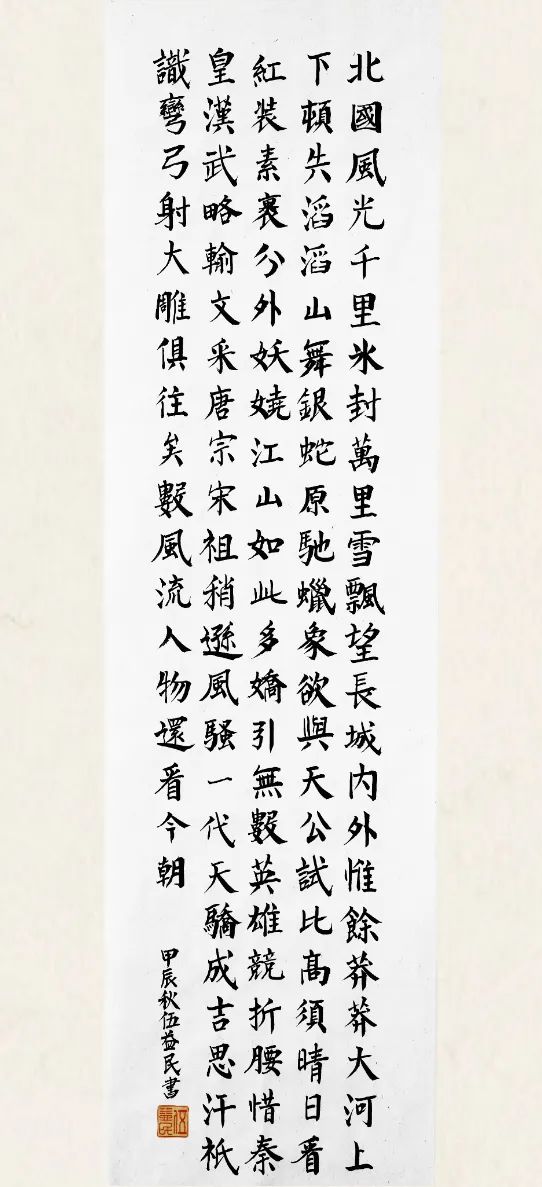 北國風光千里氷封萬里雪飄望長城内外惟餘莽莽大河上
下頓失滔滔山舞銀蛇原馳蠟象欲與天公試比高須晴日看
紅裝素裹分外妖嬈江山如此多嬌引無數英雄競折腰惜秦
皇漢武略輸文采唐宗宋祖稍遜風騷一代天驕成吉思汗祇
識彎弓射大雕俱往矣數風流人物還看今朝
甲辰秋伍益民書
伍益民